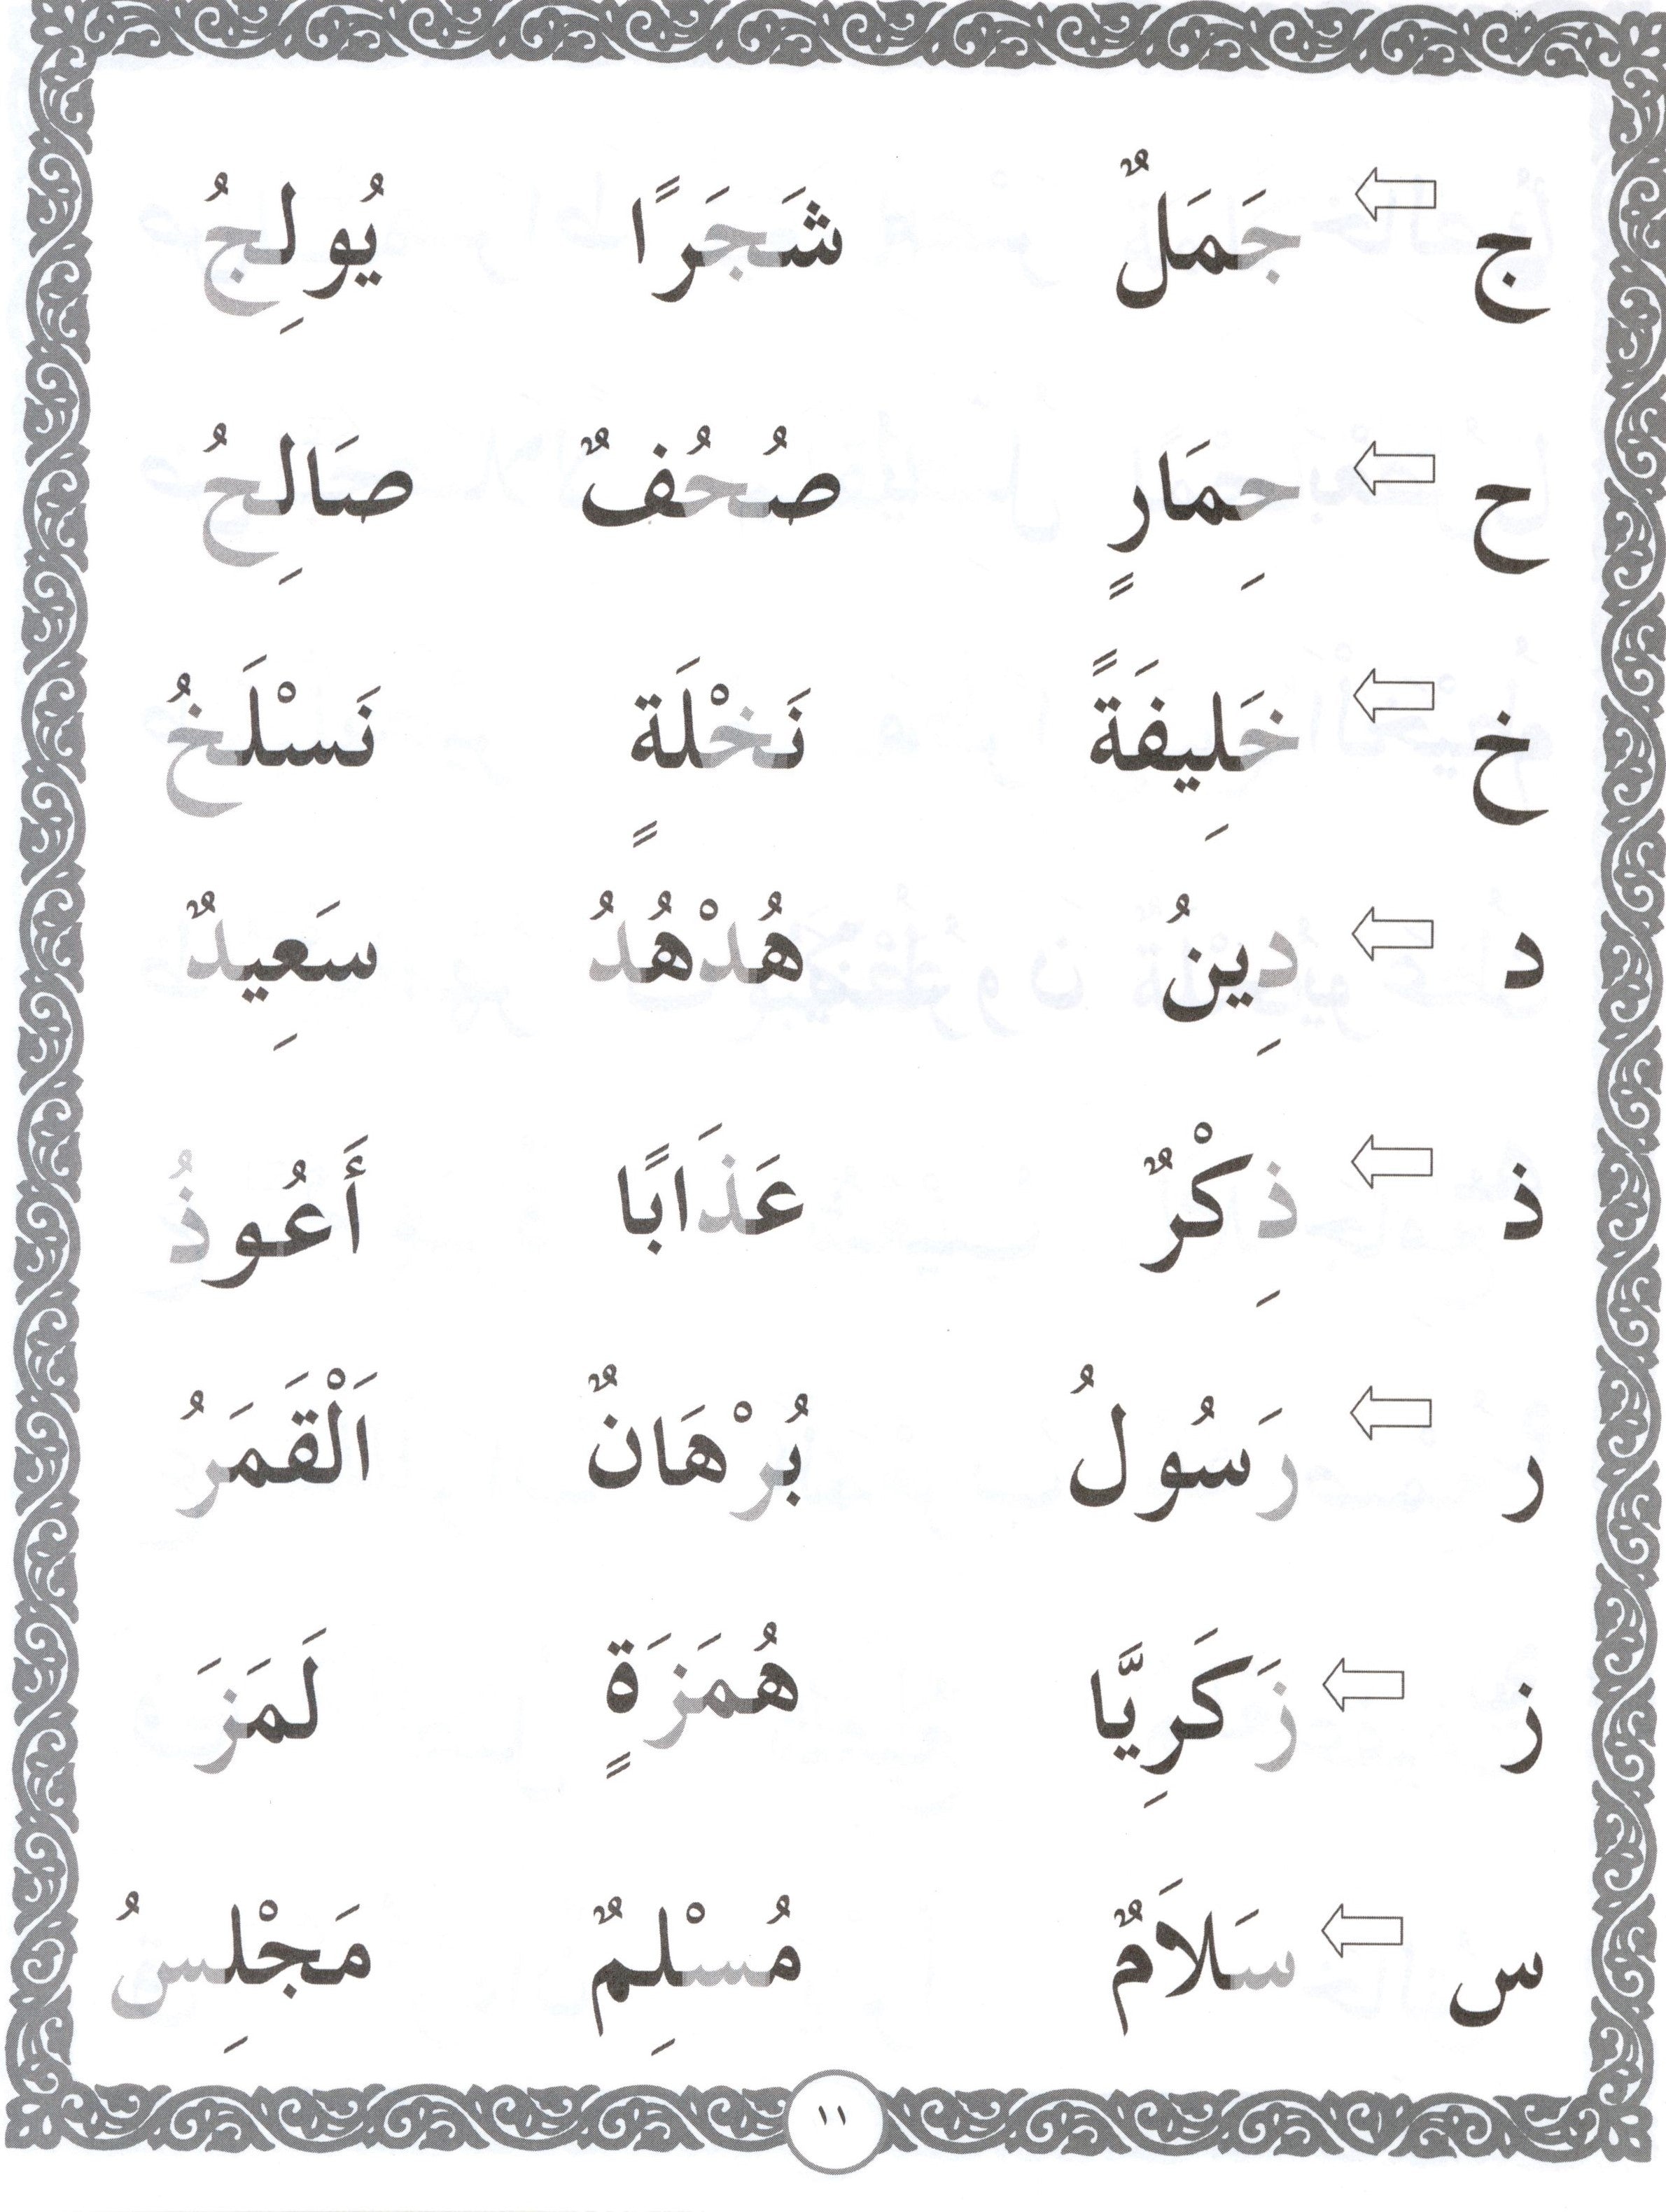 ج جَمَلٌ شَجَرًا يُولِجُ
ح حِمَارٍ صُحُفٌ صَالِحُ
خ خَلِيفَةً نَخْلَةٍ نَسْلَخُ
د دِينُ هُدْهُدُ سَعِيدٌ
ذ ذِكْرٌ عَذَابًا أَعُوذُ
ر رَسُولُ بُرْهَانٌ اَلْقَمَرُ
ز زَكَرِيَّا هُمَزَةٍ لَمَزَ
س سَلَامٌ مُسْلِمٌ مَجْلِسُ
١١